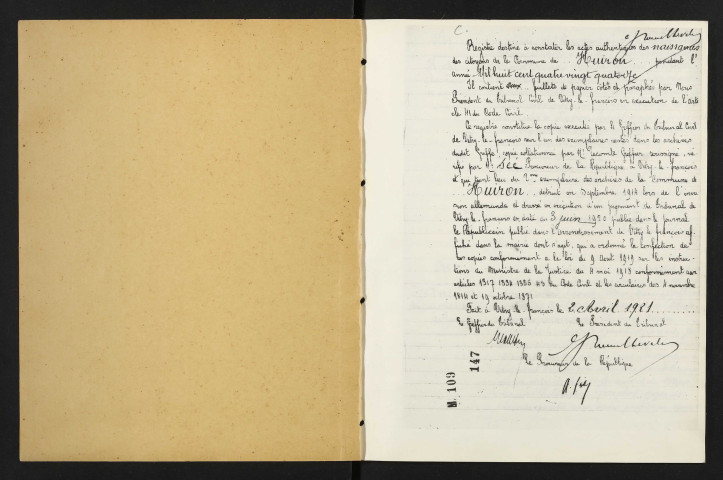 C.
Registre destiné à constater les actes authentiques des naissances
des citoyens de la Commune de Huiron pendant l'
année Mil huit cent quatre vingt quatorze
Il contient feuillets de papier cotés et paraphés par Nous
Président du Tribunal Civil de Vitry-le-françois en exécution de l'art
le 41 du Code Civil
Ce registre constitue la copie exécutée par le Greffier du Tribunal Civil
de Vitry-le-françois sur l'un des exemplaires restés dans les archives
dudit Greffe, copie collationnée par Me Lecomte Greffier soussigné, vé
rifiée par Mr Sée Procureur de la République à Vitry-le-françois
et qui tient lieu du 2me exemplaire des archives de la Commune de
Huiron, détruit en Septembre 1914 lors de l'inva
sion allemande et dressé en exécution d'un jugement du Tribunal de
Vitry-le-françois en date du 3 juin 1920 publié dans le journal
le Républicain publié dans l'arrondissement de Vitry-le-françois af
fiché dans la mairie dont s'agit, qui a ordonné la confection de
les copies conformément à la loi du 9 Aout 1919 sur les instruc
tions du Ministre de la Justice du 4 mai 1913 conformément aux
articles 1317 1334 1335 43 du Code Civil et les circulaires des 4 novembre
1814 et 19 octobre 1871
Fait à Vitry-le-françois le 2 Avril 1921
Le Greffier du Tribunal Le Président du Tribunal
Le Procureur de la République
M. 109
147